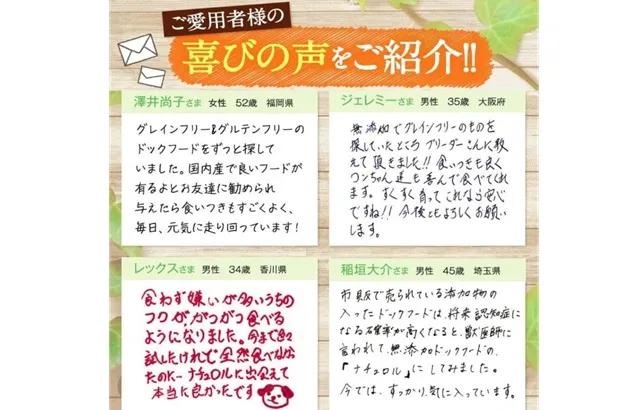 ご愛用者様の
喜びの声をご紹介!!
澤井尚子さま 女性 52歳 福岡県
グレインフリー&グルテンフリーの
ドックフードをずっと探して
いました。国内産で良いフードが
有るよとお友達に勧められ
与えたら食いつきもすごくよく、
毎日、元気に走り回っています!
ジェレミーさま 男性 35歳 大阪府
無添加でグレインフリーのものを
探していたところ ブリーダーさんに教
えて頂きました!! 食いつきも良く
ワンちゃん達も喜んで食べてくれ
ます。すくすく育ってこれなら安心
ですね!! 今後ともよろしくお願い
します。
レックスさま 男性 34歳 香川県
食わず嫌いが多いうちの
フクが、がつがつ食べる
ようになりました。今まで色々
試したけれど全然食べなかっ
たのに…ナチュロルに出会えて
本当に良かったです
稲垣大介さま 男性 45歳 埼玉県
市販で売られている添加物の
入ったドックフードは、将来認知症に
なる確率が高くなると、獣医師に
言われて、無添加ドックフードの、
「ナチュロル」にしてみました。
今では、すっかり気に入っています。